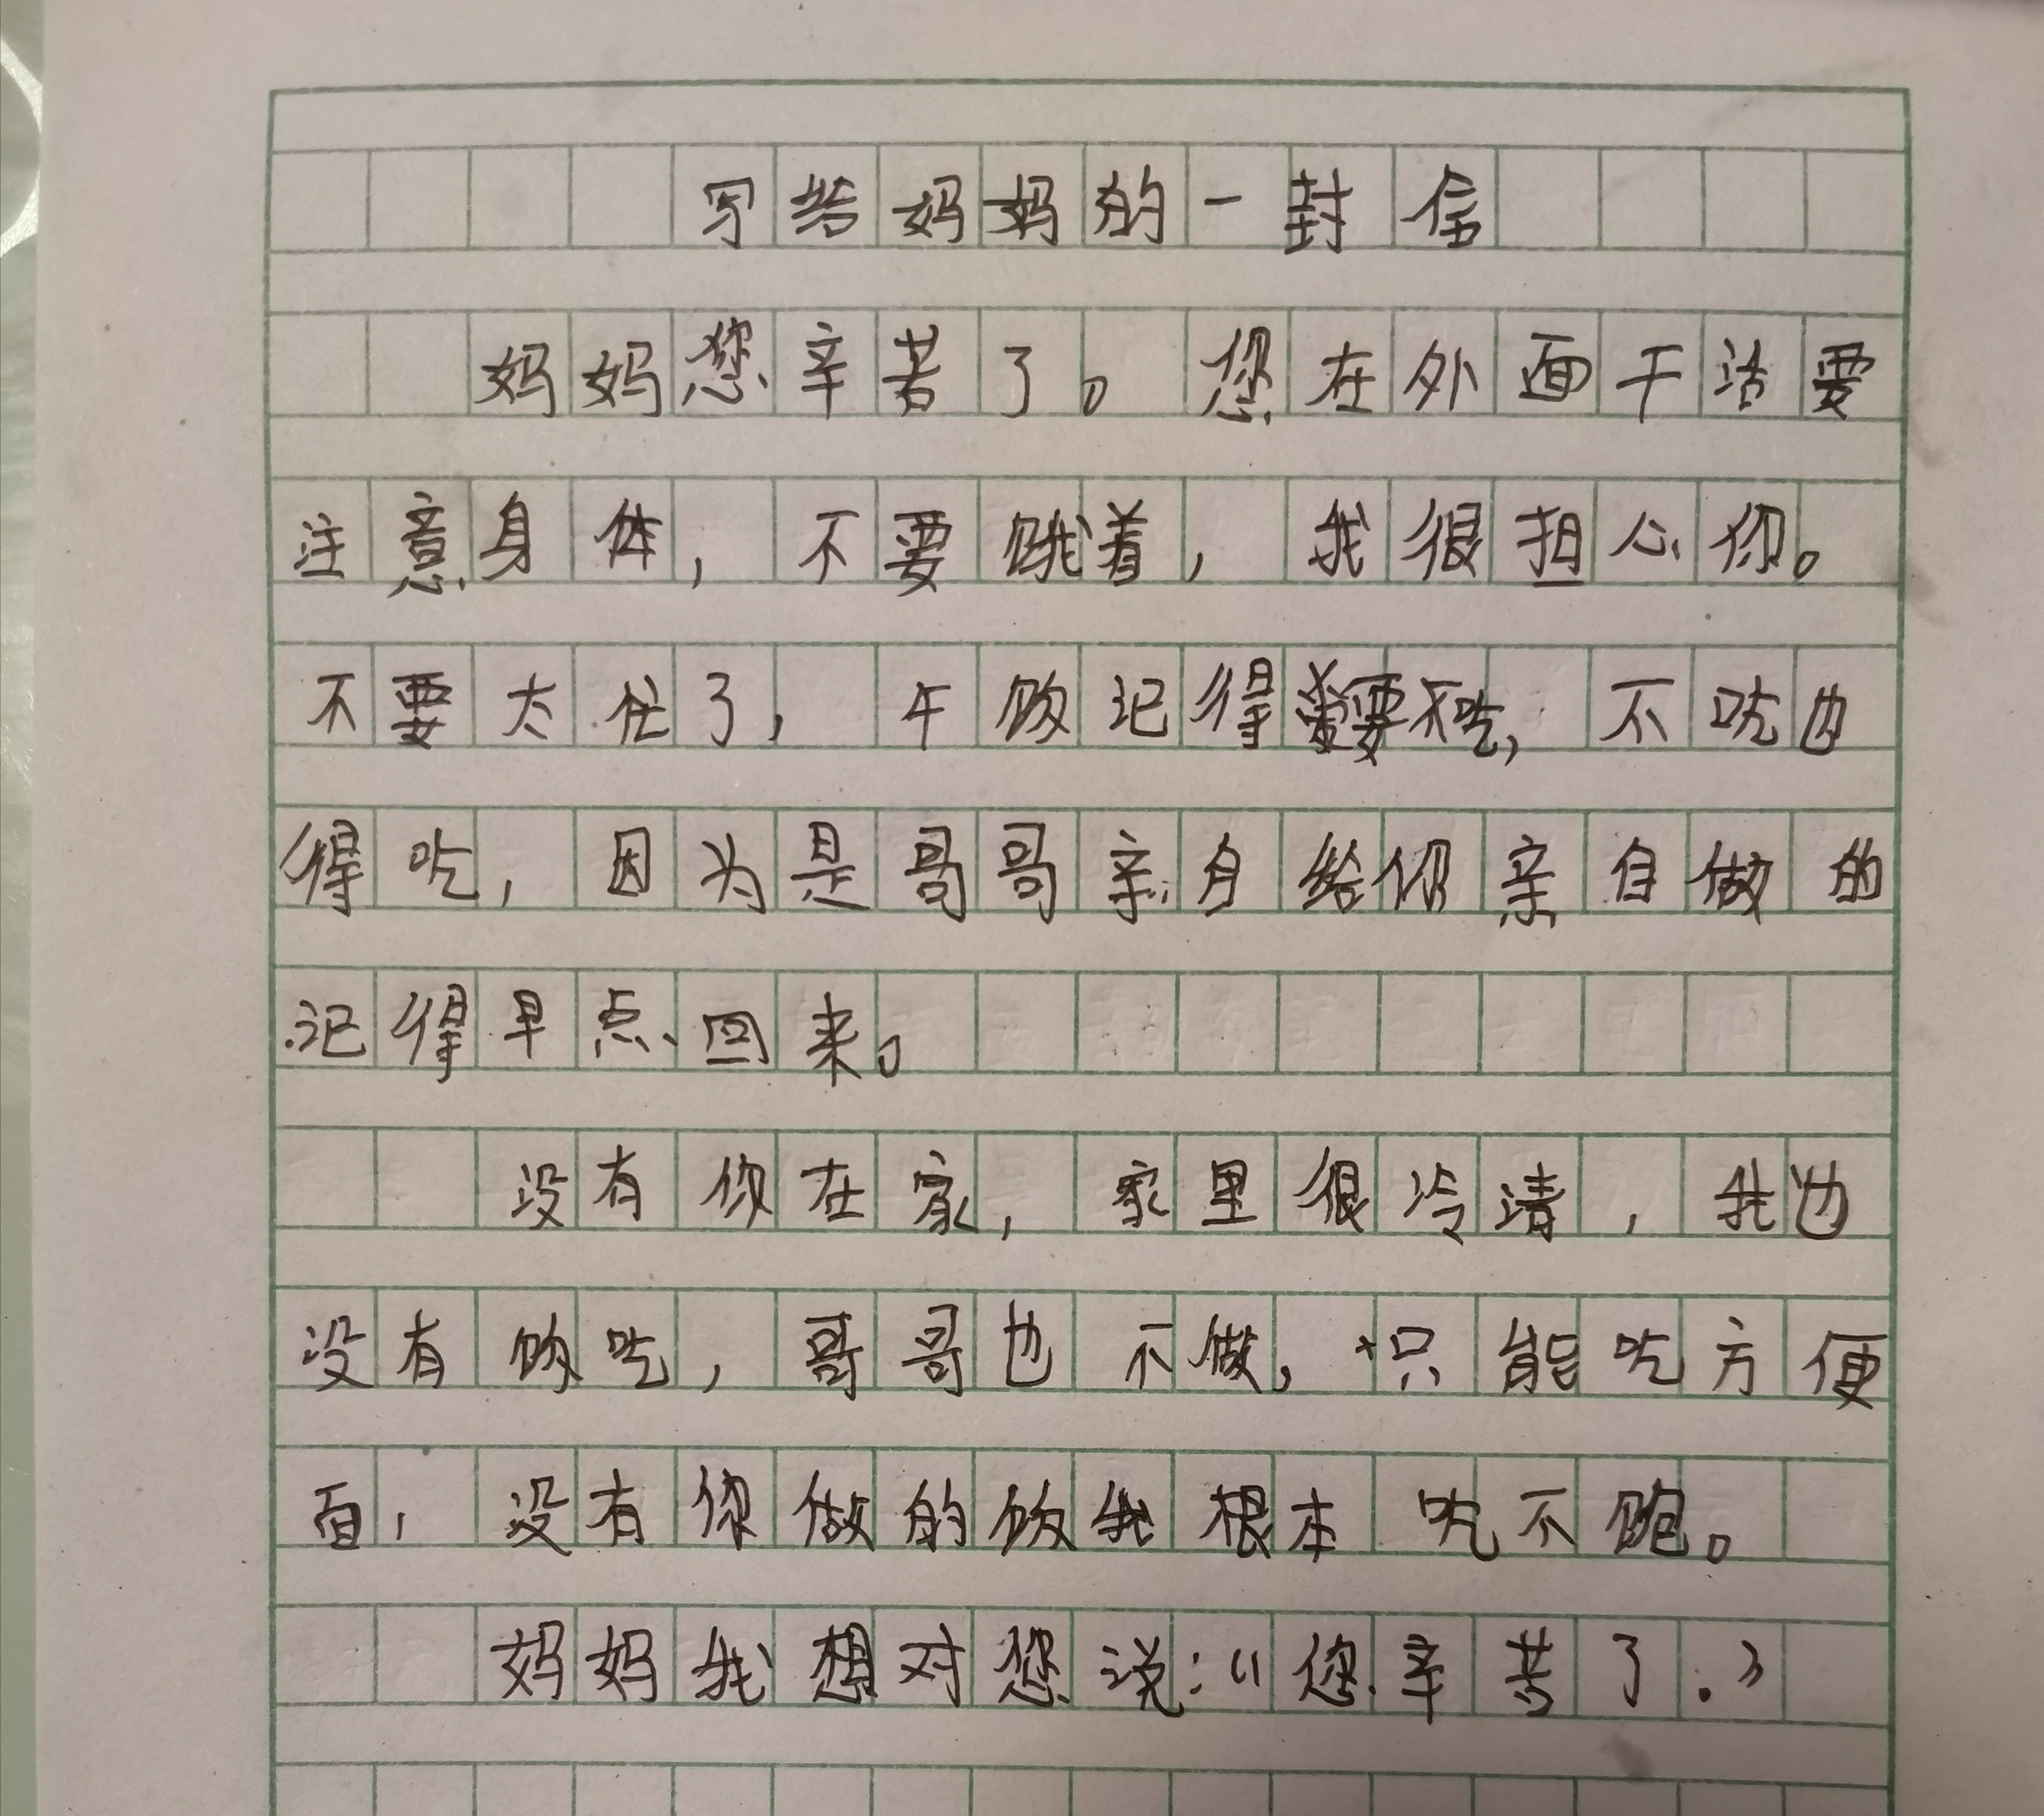 写给妈妈的一封信
妈妈您辛苦了。您在外面干活要
注意身体,不要饿着,我很担心你。
不要太忙了,午饭记得要不吃,不吃也
得吃,因为是哥哥亲自给你亲自做的
记得早点回来。
没有你在家,家里很冷清,我也
没有饭吃,哥哥也不做,只能吃方便
面,没有你做的饭我根本吃不饱。
妈妈我想对您说:“您辛苦了.”